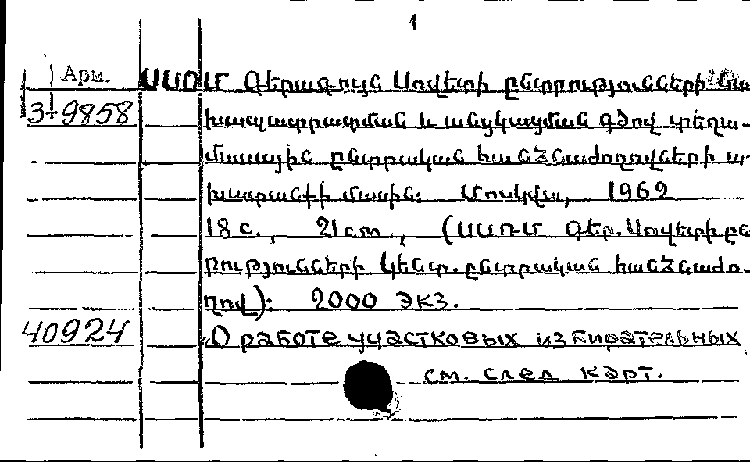 1
Арм. ՍՍՌՄ Գերագույն Սովետի ընտրությունների նա-
3-9858 խապատրաստման և անցկացման գծով տեղա-
մասային ընտրական հանձնաժողովների աշ-
խատանքի մասին: Մոսկվա, 1962
18 с., 21 cm., (ՍՍՌՄ Գեր. Սովետի ըն
րությունների կենտ. ընտրական հանձնաժո-
ղով): 2000 экз.
40924 О работе участковых избирательных
см. след карт.